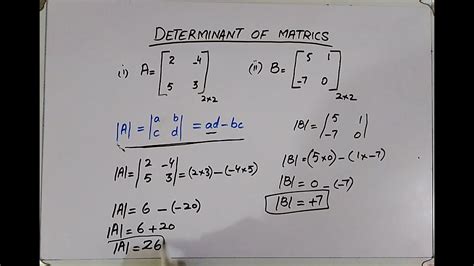 DETERMINANT OF MATRICS
(i) A = [2 -4
5 3]2×2
(ii) B = [5 1
-7 0]2×2
|A| = |a b
c d| = ad - bc
|A| = |2 -4
5 3| = (2×3) - (-4×5)
|A| = 6 - (-20)
|A| = 6 + 20
|A| = 26
|B| = |5 1
-7 0|
|B| = (5×0) - (1×-7)
|B| = 0 - (-7)
|B| = +7